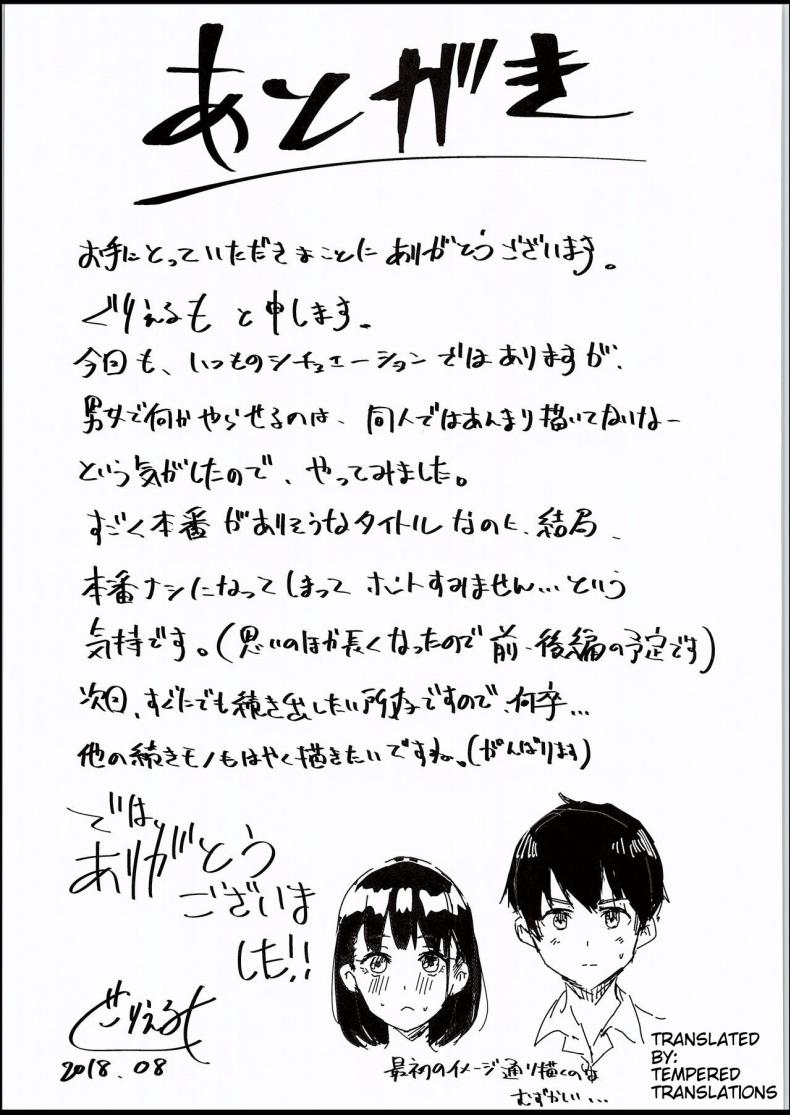 あとがき
お手にとっていただきまことにありがとうございます。
ぐりえるもと申します。
今回も、いつものシチュエーションではありますが、
男女で何かやらせるのは、同人ではあんまり描いてないなー
という気がしたので、やってみました。
すごく本番がありそうなタイトルなのに、結局、
本番ナシになってしまってホントすみません…という
気持です。(思いのほか長くなったので前・後編の予定です)
次回、すぐにでも続き出したい所存ですので、何卒…
他の続きモノもはやく描きたいですね。(がんばります)
では、
ありがとう
ございま
した!!
ぐりえるも
2018.08
最初のイメージ通り描くのは
むずかしい...
TRANSLATED
BY:
TEMPERED
TRANSLATIONS